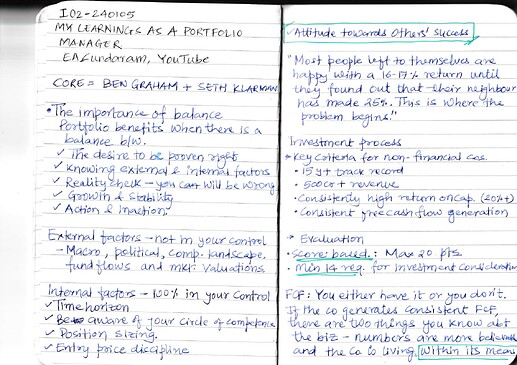 I02-240105
MY LEARNINGS AS A PORTFOLIO
MANAGER
EASundaram, YouTube
CORE = BEN GRAHAM + SETH KLARMAN
• The importance of balance
Portfolio benefits when there is a
balance b/w.
✓ The desire to be proven right
✓ Knowing external & internal factors
✓ Reality check – you can will be wrong
✓ Growth & Stability
✓ Action & Inaction.
External factors – not in your control
– Macro, political, comp. landscape,
fund flows and mkt. valuations.
Internal factors – 100% in your control
✓ Time horizon
✓ Be aware of your circle of competence
✓ Position sizing.
✓ Entry price discipline
✓ Attitude towards Others' Success
"Most people left to themselves are
happy with a 16-17% return until
they found out that their neighbour
has made 25%. This is where the
problem begins."
Investment process
* Key criteria for non-financial cos.
• 15y+ track record
• 500cr+ revenue
• Consistently high return on cap. (20%+)
• Consistent free cash flow generation
→ Evaluation
• Score based: Max 20 pts.
• Min 14 req. for investment consideration
FCF: You either have it or you don't.
If the co generates consistent FCF,
there are two things you know abt
the biz – numbers are more
and the Co is living within its means